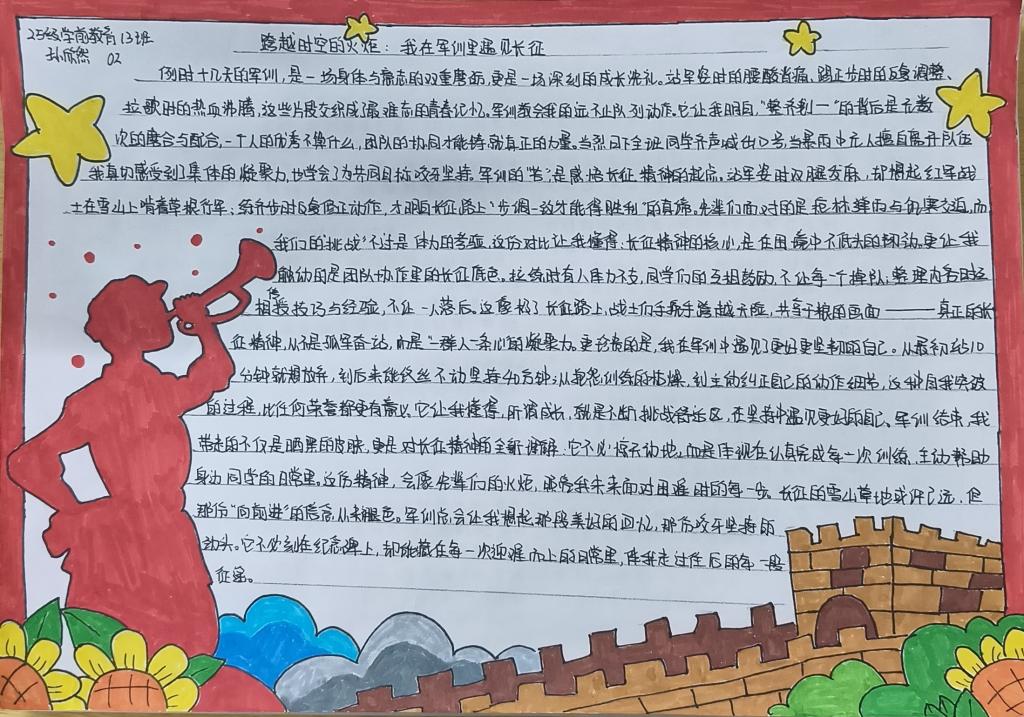 25级学前教育13班
孙欣然 02
跨越时空的火炬：我在军训里遇见长征
例时十几天的军训，是一场身体与意志的双重磨砺，更是一场深刻的成长洗礼。站军姿时的腰酸背痛、踢正步时的反复调整、
拉歌时的热血沸腾，这些片段交织成最难忘的青春记忆。军训教会我的远不止队列动作，它让我明白，“整齐划一”的背后是无数
次的磨合与配合，一个人的优秀不算什么，团队的协同才能铸就真正的力量。当烈日下全班同学齐声喊出口号，当暴雨中无人擅自离开队伍
我真切感受到了集体的凝聚力，也学会了为共同目标咬牙坚持。军训的“苦”是感悟长征精神的起点。站军姿时双腿发麻，却想起红军战
士在雪山上啃着草根行军；练齐步时反复修正动作，才明白长征路上“步调一致才能得胜利”的真谛。先辈们面对的是枪林弹雨与饥寒交迫，而
我们的“挑战”不过是体力的考验，这份对比让我懂得，长征精神的核心，是在困境中不低头的韧劲。更让我
触动的是团队协作里的长征底色。拉练时有人体力不支，同学们的互相鼓励，不让每一个掉队；整理内务时互
相传授技巧与经验，不让一人落后。这像极了长征路上，战士们手挽手跨越天险，共享干粮的画面——真正的长
征精神，从不是孤军奋战，而是“一群人一条心”的凝聚力。更珍贵的是，我在军训中遇见了更好更坚韧的自己。从最初站10
分钟就想放弃，到后来能纹丝不动坚持40分钟；从抱怨训练的枯燥，到主动纠正自己的动作细节，这种自我突破
的过程，比任何荣誉都更有意义。它让我懂得，所谓成长，就是不断挑战舒适区，在坚持中遇见更好的自己。军训结束，我
带走的不仅是晒黑的皮肤，更是对长征精神的全新理解。它不必惊天动地，而是体现在认真完成每一次训练、主动帮助
身边同学的日常里。这份精神，会像先辈们的火炬，照亮我未来面对困难时的每一步。长征的雪山草地或许已远，但
那份“向前进”的信念，从未褪色。军训后，会让我想起那段美好的回忆，那份咬牙坚持的
劲头。它不必刻在纪念碑上，却能藏在每一次迎难而上的日常里，伴我走过往后的每一段
征途。